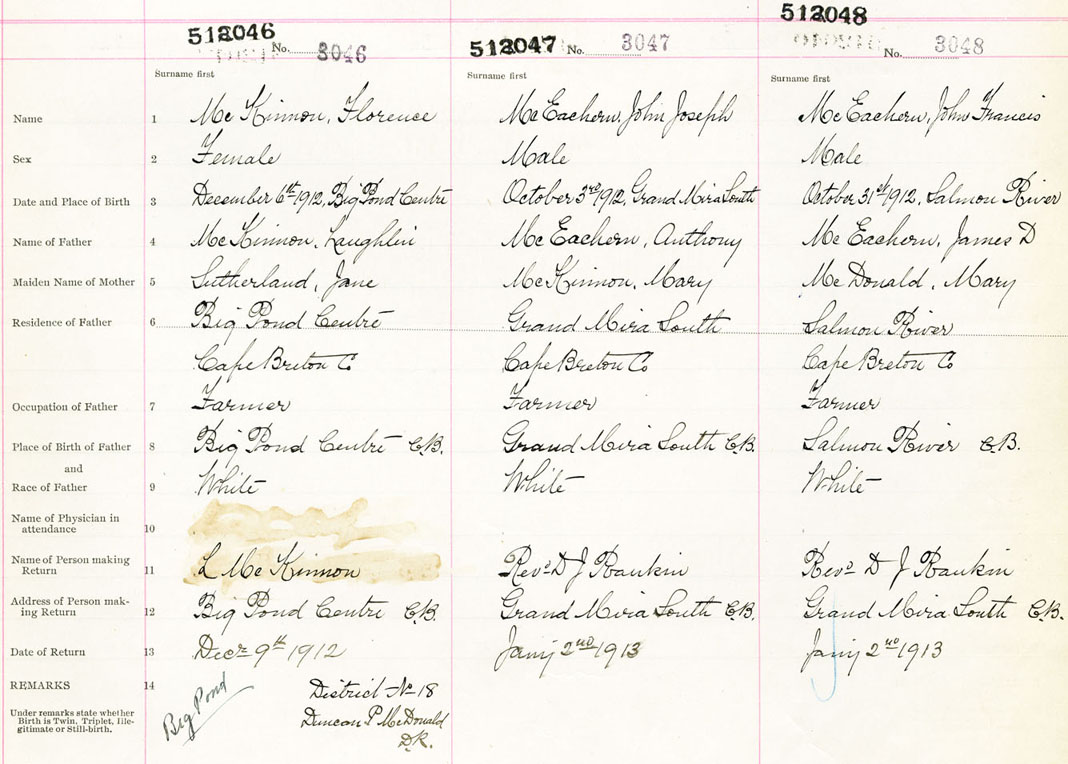 512046
No. 3046
512047
No. 3047
512048
No. 3048
Surname first
Surname first
Surname first
Name 1 McKinnon, Florence
McEachern, John Joseph
McEachern, John Francis
Sex 2 Female
Male
Male
Date and Place of Birth 3 December 6th 1912, Big Pond Centre
October 3rd 1912, Grand Mira South
October 31st 1912, Salmon River
Name of Father 4 McKinnon, Laughlin
McEachern, Anthony
McEachern, James D
Maiden Name of Mother 5 Sutherland, Jane
McKinnon, Mary
McDonald, Mary
Residence of Father 6 Big Pond Centre
Grand Mira South
Salmon River
Cape Breton Co
Cape Breton Co
Cape Breton Co
Occupation of Father 7 Farmer
Farmer
Farmer
Place of Birth of Father 8 Big Pond Centre C.B.
Grand Mira South C.B.
Salmon River C.B.
and
Race of Father 9 White
White
White
Name of Physician in
attendance 10
Name of Person making
Return 11 L McKinnon
Revd D J Rankin
Revd D J Rankin
Address of Person mak-
ing Return 12 Big Pond Centre C.B.
Grand Mira South C.B.
Grand Mira South C.B.
Date of Return 13 Decr 9th 1912
Jany 2nd 1913
Jany 2nd 1913
REMARKS 14
Under remarks state whether
Birth is Twin, Triplet, Ille-
gitimate or Still-birth.
Big Pond
District No 18
Duncan P McDonald
D.R.